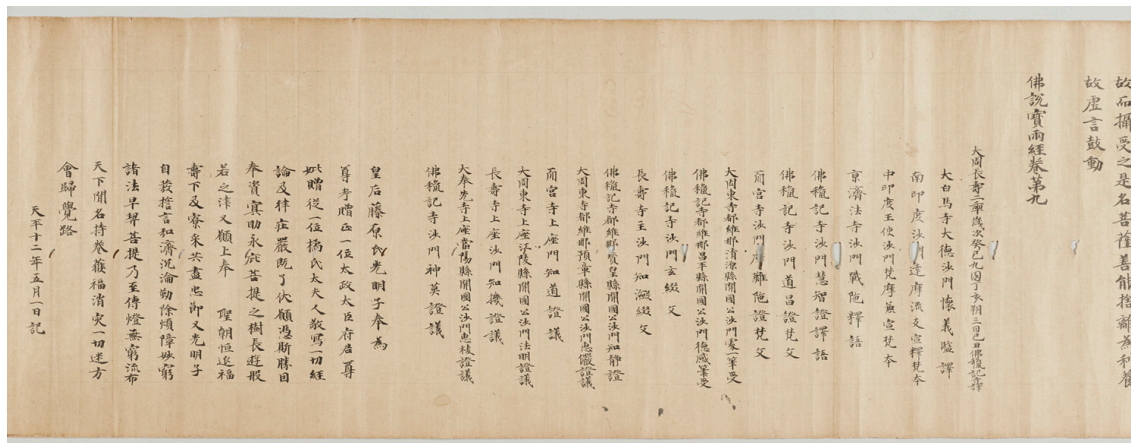 故而攝受之是名菩薩善能捨離為利養
故虛言鼓動
佛說寶雨經卷第九
大周長壽二年歲次癸巳九月丁亥朔三日己丑佛授記寺譯
大白馬寺大德沙門懷義監譯
南印度沙門達摩流支宣釋梵本
中印度王使沙門梵摩兼宣梵本
京濟法寺沙門戰陁釋語
佛授記寺沙門慧智證譯語
佛授記寺沙門道昌證梵文
天宮寺沙門達摩難陁證梵文
大周東寺都維那清源縣開國公沙門處一筆受
佛授記寺都維那昌平縣開國公沙門德感筆受
佛授記寺沙門玄綴文
長壽寺主沙門知激綴文
佛授記寺都維那贊皇縣開國公沙門知靜證
大周東寺都維那豫章縣開國公沙門惠儼證議
天宮寺上座沙門知道證議
大周東寺上座江陵縣開國公沙門法明證議
長壽寺上座沙門知機證議
大奉先寺上座當陽縣開國公沙門惠稜證議
佛授記寺沙門神英證議
皇后藤原氏光明子奉為
尊考贈正一位太政太臣府君尊
妣贈從一位橘氏太夫人敬寫一切經
論及律莊嚴既了伏願憑斯勝因
奉資冥助永庇菩提之樹長遊般
若之津又願上奉 聖朝恒延福
壽下及寮采共盡忠節又光明子
自發誓言弘濟沉淪勤除煩障妙窮
諸法早契菩提乃至傳燈無窮流布
天下聞名持卷獲福消灾一切迷方
會歸覺路
天平十二年五月一日記